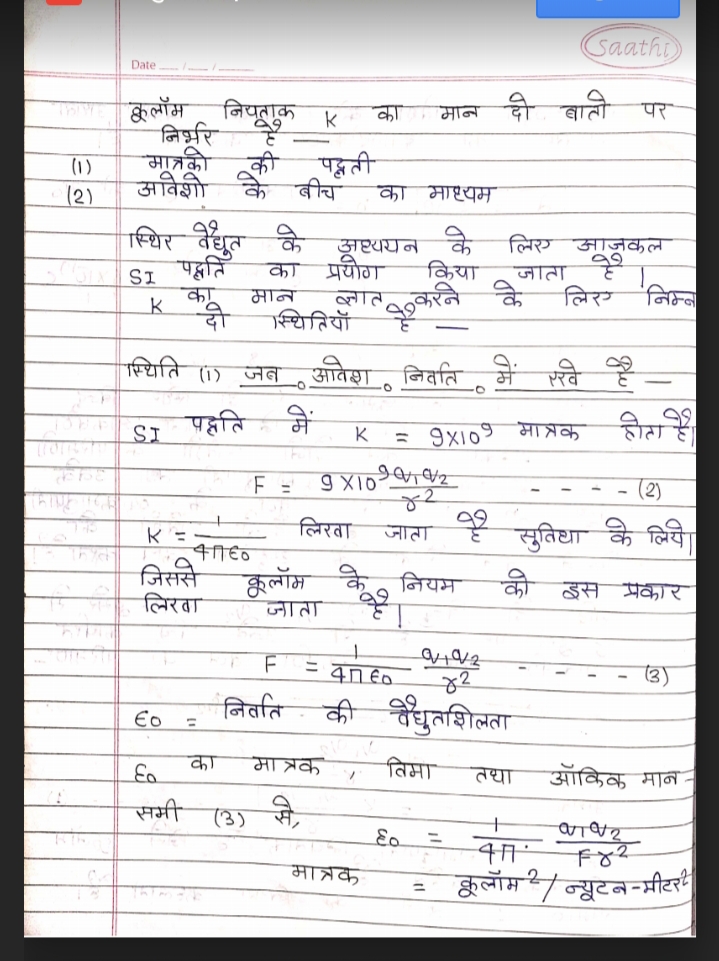 Saathi
Date __/__/__
कूलॉम नियताक K का मान दो बातो पर
निर्भर है —
(1) मात्रको की पद्धती
(2) आवेशो के बीच का माध्यम
स्थिर वैद्युत के अध्ययन के लिए आजकल
SI पद्धति का प्रयोग किया जाता है |
K का मान ज्ञात करने के लिए निम्न
दो स्थितियाँ है —
स्थिति (1) जब आवेश निर्वात में रखे है —
SI पद्धति में K = 9x10⁹ मात्रक होता है|
F = 9x10⁹ q₁q₂/r² - - - - (2)
K = 1/4πεo लिखा जाता है सुविधा के लिये|
जिससे कूलॉम के नियम को इस प्रकार
लिखा जाता है|
F = 1/4πεo q₁q₂/r² - - - - (3)
εo = निर्वात की वैधुतशिलता
εo का मात्रक, विमा तथा ऑकिक मान -
समी (3) से,
εo = 1/4π · q₁q₂/Fr²
मात्रक = कूलॉम²/न्यूटन-मीटर²